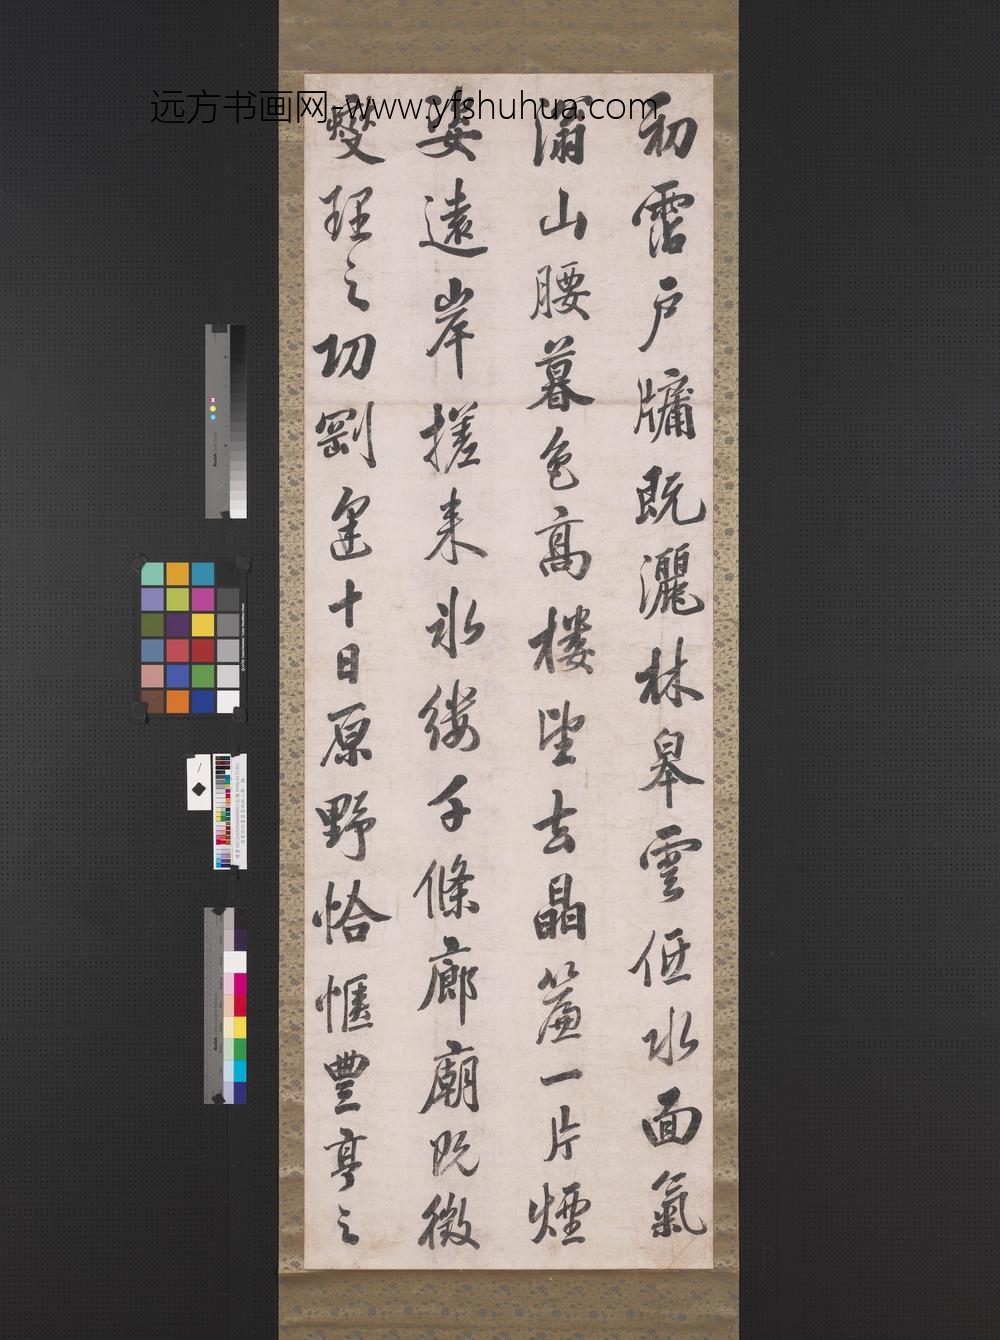 远方书画网-www.yfshuhua.com
初霑戶牖既灑林皋雲低水面氣
滃山腰暮色高樓望去晶簾一片煙
遠岸搓來冰縷千條廊廟既徵
燮理之功剛十日原野恰愜豐亨之